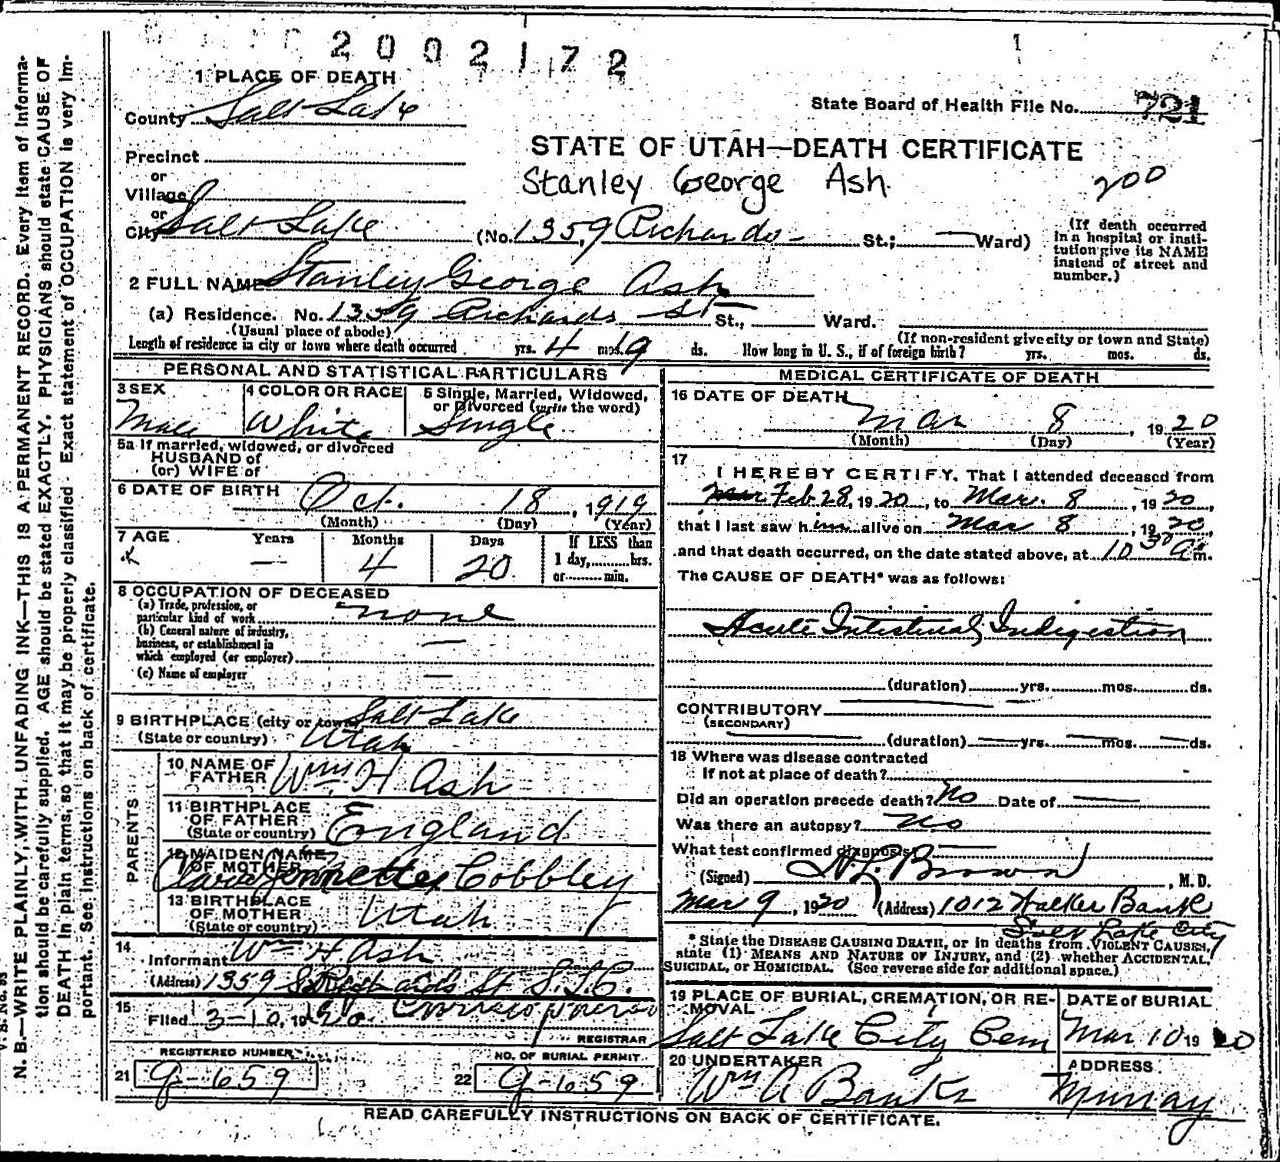 2002172
1
1 PLACE OF DEATH
County Salt Lake
State Board of Health File No. 721
Precinct
or
Village
or
City Salt Lake
STATE OF UTAH—DEATH CERTIFICATE
Stanley George Ash
200
(No. 1359 Richards St.; Ward)
(If death occurred
in a hospital or insti-
tution give its NAME
instead of street and
number.)
2 FULL NAME Stanley George Ash
(a) Residence. No. 1359 Richards St St., Ward.
(Usual place of abode)
(If non-resident give city or town and State)
Length of residence in city or town where death occurred yrs. 4 mos. 19 ds. How long in U. S., if of foreign birth? yrs. mos. ds.
PERSONAL AND STATISTICAL PARTICULARS
3 SEX
Male
4 COLOR OR RACE
White
5 Single, Married, Widowed,
or Divorced (write the word)
Single
5a If married, widowed, or divorced
HUSBAND of
(or) WIFE of
6 DATE OF BIRTH Oct. 18, 1919
(Month) (Day) (Year)
7 AGE Years Months Days If LESS than
— 4 20 1 day, hrs.
or min.
8 OCCUPATION OF DECEASED
(a) Trade, profession, or
particular kind of work none
(b) General nature of industry,
business, or establishment in
which employed (or employer) —
(c) Name of employer —
9 BIRTHPLACE (city or town) Salt Lake
(State or country) Utah
PARENTS
10 NAME OF
FATHER Wm H Ash
11 BIRTHPLACE
OF FATHER
(State or country) England
12 MAIDEN NAME
OF MOTHER Jennette Cobbley
13 BIRTHPLACE
OF MOTHER
(State or country) Utah
14
Informant Wm H Ash
(Address) 1359 S Richards St S.L.C.
15
Filed 3-10, 1920
REGISTRAR
REGISTERED NUMBER
21 G-659
NO. OF BURIAL PERMIT
22 G-659
MEDICAL CERTIFICATE OF DEATH
16 DATE OF DEATH
Mar 8, 1920
(Month) (Day) (Year)
17
I HEREBY CERTIFY, That I attended deceased from
Feb 28, 1920, to Mar. 8, 1920,
that I last saw him alive on Mar 8, 1920,
and that death occurred, on the date stated above, at 10 30 a m.
The CAUSE OF DEATH* was as follows:
Acute Intestinal Indigestion
(duration) yrs. mos. ds.
CONTRIBUTORY
(SECONDARY)
(duration) — yrs. — mos. — ds.
18 Where was disease contracted
If not at place of death?
Did an operation precede death? No Date of —
Was there an autopsy? No
What test confirmed diagnosis? —
(Signed) H L Brown, M. D.
Mar 9, 1920 (Address) 1012 Walker Bank
Salt Lake City
* State the DISEASE CAUSING DEATH, or in deaths from VIOLENT CAUSES,
state (1) MEANS AND NATURE OF INJURY, and (2) whether ACCIDENTAL,
SUICIDAL, or HOMICIDAL. (See reverse side for additional space.)
19 PLACE OF BURIAL, CREMATION, OR RE-
MOVAL
Salt Lake City Cem
DATE of BURIAL
Mar 10 1920
20 UNDERTAKER
Wm A Banks
ADDRESS
Murray
READ CAREFULLY INSTRUCTIONS ON BACK OF CERTIFICATE.
N. B.—WRITE PLAINLY, WITH UNFADING INK—THIS IS A PERMANENT RECORD. Every Item of Informa-
tion should be carefully supplied. AGE should be stated EXACTLY. PHYSICIANS should state CAUSE OF
DEATH in plain terms, so that it may be properly classified. Exact statement of OCCUPATION is very Im-
portant. See Instructions on back of certificate.